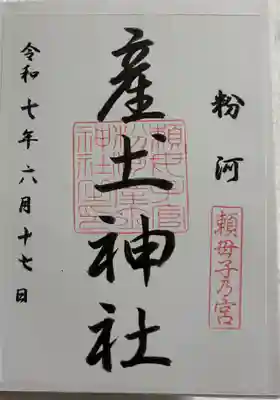 粉河
頼母子乃宮
産土神社
令和七年六月十七日